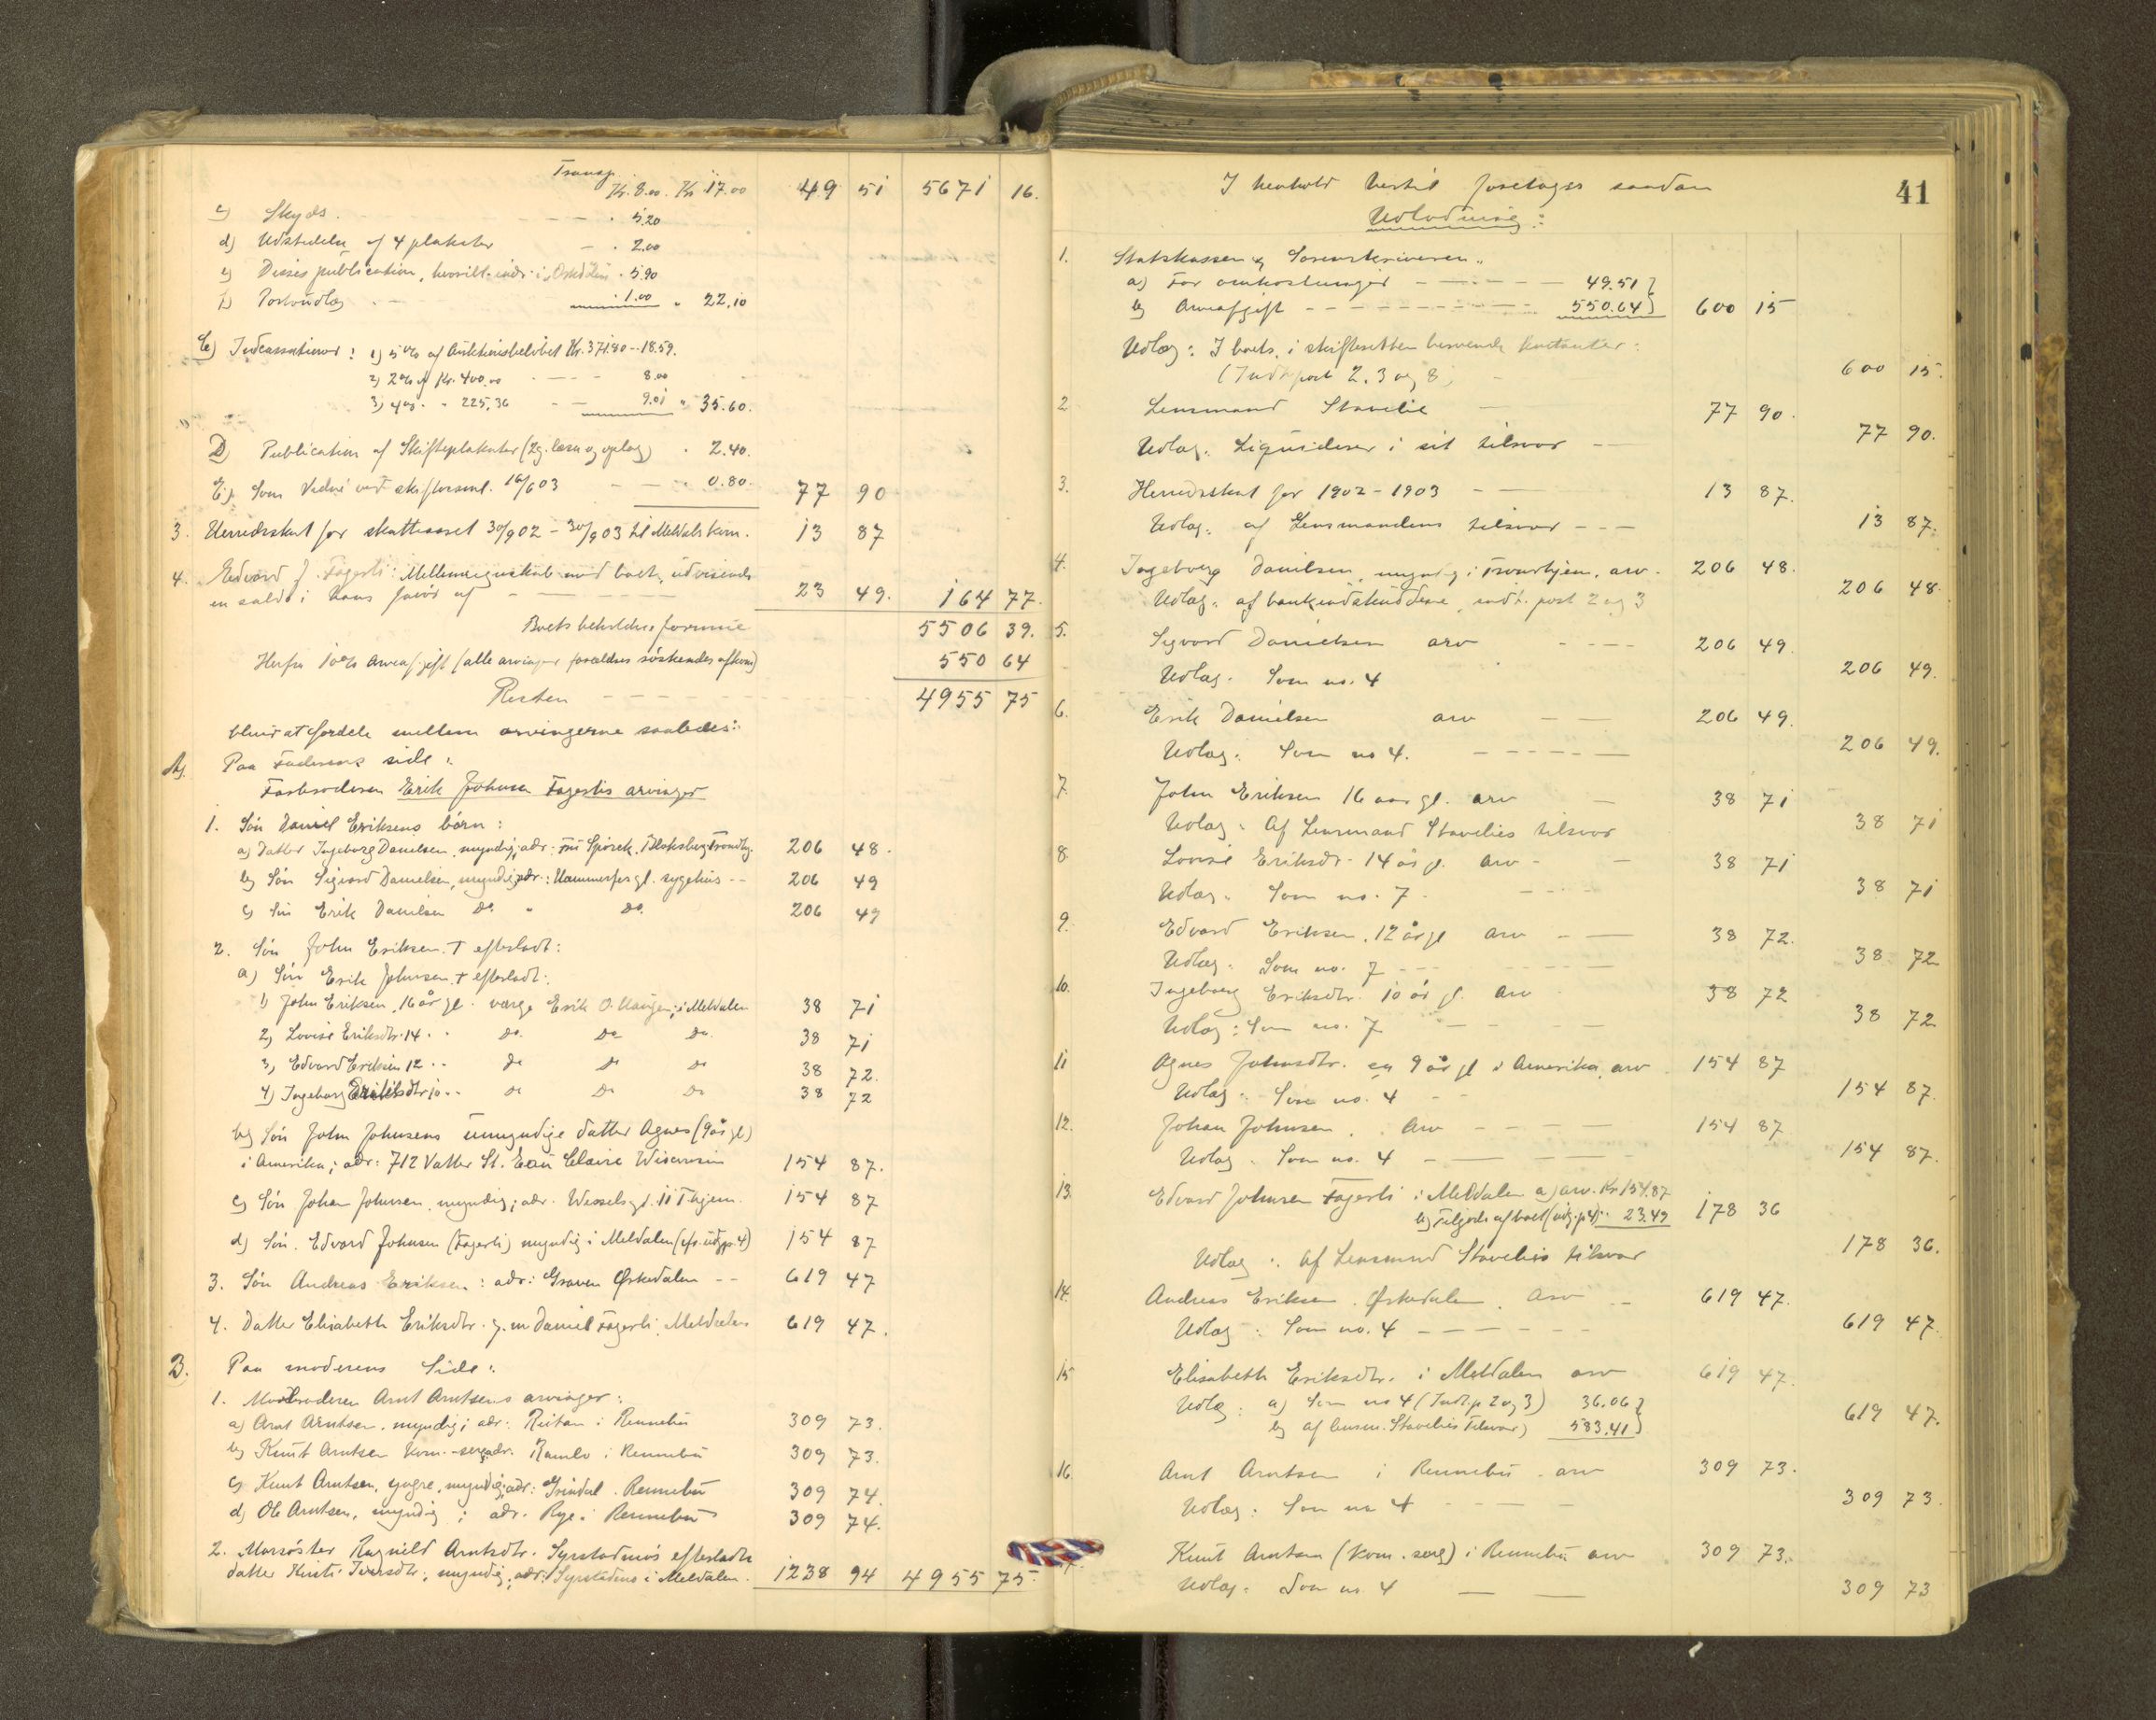 Transp. Kr. 8.00. Kr 17.00 49 51 5671 16.
c) Skyds. - - - 5.20
d) Udstedelse af 4 plakater - 2.00
e) Disses publication, hvorilt indr. i - 5.90
f) Portoudlæg - 1.00 " 22.10
C) Indcassationer: 1) 5% af Auktionsbeløbet Kr. 371.80 - 18.59.
2) 2% af Kr. 400.00 - - - 8.00
3) 4% - " 225.36 - - 9.01 " 35.60.
D) Publication af Skifteplakater (2 g. læsn og opslag) " 2.40.
E) Som Vidne ved skiftesaml. 16/6 03 - - " 0.80. 77 90
3. Herredsskat for skatteaaret 30/9 02 - 30/9 03 til Meldals kom. 13 87
4. Edvard J. Fagerli: Mellemregnskab med boet, udvisende
en saldo i hans favør af - - - 23 49. 164 77.
Boets beholdne formue 5506 39.
Herfra 10% Arveafgift (alle arvinger forældres søskendes afkom) 550 64
Resten - - - 4955 75
bliver at fordele mellem arvingerne saaledes:
A. Paa Faderens side:
Farbroderen Erik Johnsen Fagerlis arvinger
1. Søn Daniel Eriksens børn:
a) Datter Ingeborg Danielsen, myndig, adr: Fru Spørck, Bloksberg Trondhj. 206 48.
b) Søn Sigvard Danielsen, myndig, adr: Hammerfes gl. sygehus - - 206 49
c) Søn Erik Danielsen do. " do. 206 49
2. Søn John Eriksen † efterladt:
a) Søn Erik Johnsen † efterladt:
1) John Eriksen, 16 år gl. værge Erik O. Haugen, i Meldalen 38 71
2) Lovise Eriksdtr. 14 " " do. do do. 38 71
3) Edvard Eriksen 12 " " do do do 38 72.
4) Ingeborg Eriksdtr 10 " " do do do 38 72
b) Søn John Johnsens umyndige datter Agnes (9 år gl)
i Amerika; adr: 712 Vatter St. Eau Claire Wisconsin 154 87.
c) Søn Johan Johnsen, myndig; adr. Wesselsg. 11 Thjem. 154 87
d) Søn. Edvard Johnsen (Fagerli) myndig i Meldalen (cfr. udg. p. 4) 154 87
3. Søn Andreas Eriksen: adr: Graven Ørkedalen - - 619 47
4. Datter Elisabeth Eriksdtr. g. m Daniel Fagerli, Meldalen 619 47.
B. Paa moderens Side:
1. Morbroderen Arnt Arntsens arvinger:
a) Arnt Arntsen, myndig; adr: Reitan i Rennebu 309 73.
b) Knut Arntsen kom.-serg. adr. Ramlo i Rennebu 309 73.
c) Knut Arntsen, yngre, myndig; adr: Grindal. Rennebu 309 74.
d) Ole Arntsen, myndig; adr. Rye i Rennebu 309 74.
2. Morsøster Ragnild Arntsdtr. Syrstadmo's efterladte
datter Kirsti Iversdtr, myndig, adr: Syrstadmo i Meldalen. 1238 94 4955 75.
41
I henhold hertil foretages saadan
Udlodning:
1. Statskassen v. Sorenskriveren.
a) For omkostninger - - - 49.51
b) Arveafgift - - - 550.64 600 15
Udlæg: I boets, i skifteretten beroende kontanter:
(Indt. post 2, 3 og 8) - 600 15.
2. Lensmand Stavelie - 77 90.
Udlæg. Liqviderer i sit tilsvar - - 77 90.
3. Herredsskat for 1902 - 1903 - - 13 87.
Udlæg: af Lensmandens tilsvar - - - 13 87.
4. Ingeborg Danielsen, myndig i Trondhjem, arv - 206 48.
Udlæg: af bankindskuddene, indt. post 2 og 3 206 48.
5. Sigvard Danielsen arv - - - 206 49.
Udlæg. Som no. 4 206 49.
6. Erik Danielsen arv - - 206 49.
Udlæg: Som no 4. - - - 206 49.
7. John Eriksen 16 aar gl. arv - 38 71
Udlæg: Af Lensmand Stavelies tilsvar 38 71
8. Lovise Eriksdr. 14 år gl. arv - - 38 71
Udlæg: Som no. 7. - - 38 71
9. Edvard Eriksen, 12 år gl arv - - 38 72.
Udlæg: Som no. 7 - - - 38 72
10. Ingeborg Eriksdtr. 10 år gl. arv 38 72
Udlæg: Som no. 7 - - - 38 72
11 Agnes Johnsdtr. ca 9 år gl i Amerika, arv 154 87
Udlæg: Som no. 4 - - 154 87.
12. Johan Johnsen. Arv - - - 154 87.
Udlæg. Som no. 4 - - - 154 87.
13. Edvard Johnsen Fagerli i Meldalen a) arv. Kr 154.87
b) Tilgode af boet (udg. p 4) 23.49 178 36
Udlæg: Af Lensmand Stavelies tilsvar 178 36.
14. Andreas Eriksen. Ørkedalen. Arv - - 619 47.
Udlæg: Som no. 4 - - - 619 47.
15 Elisabeth Eriksdtr. i Meldalen arv 619 47.
Udlæg: a) Som no 4 (Indt. p 2 og 3) 36.06
b) af Lensm. Stavelies tilsvar) 583.41 619 47.
16. Arnt Arntsen i Rennebu. arv 309 73.
Udlæg: Som no 4 - - - 309 73.
Knut Arntsen (kom. serg) i Rennebu arv 309 73.
Udlæg. Som no 4 - - 309 73